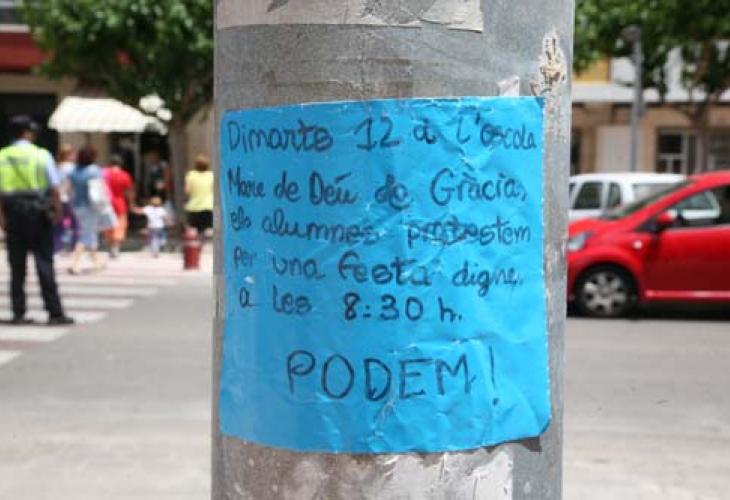 Dimarts 12 a l'escola
Mare de Deú de Gràcia,
els alumnes protestem
per una festa digne,
a les 8:30 h.
PODEM!